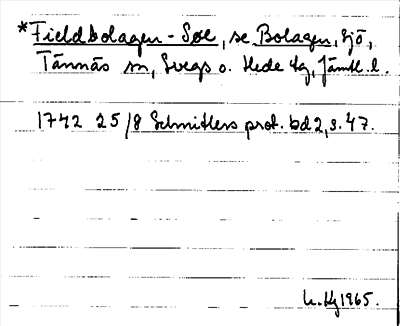 *Fieldbolagen-Søe, se Bolagen, sjö,
Tännäs sn, Svegs o. Hede tg, Jämtl. l.
1742 25/8 Schnitlers prot. bd 2, s. 47.
1965.